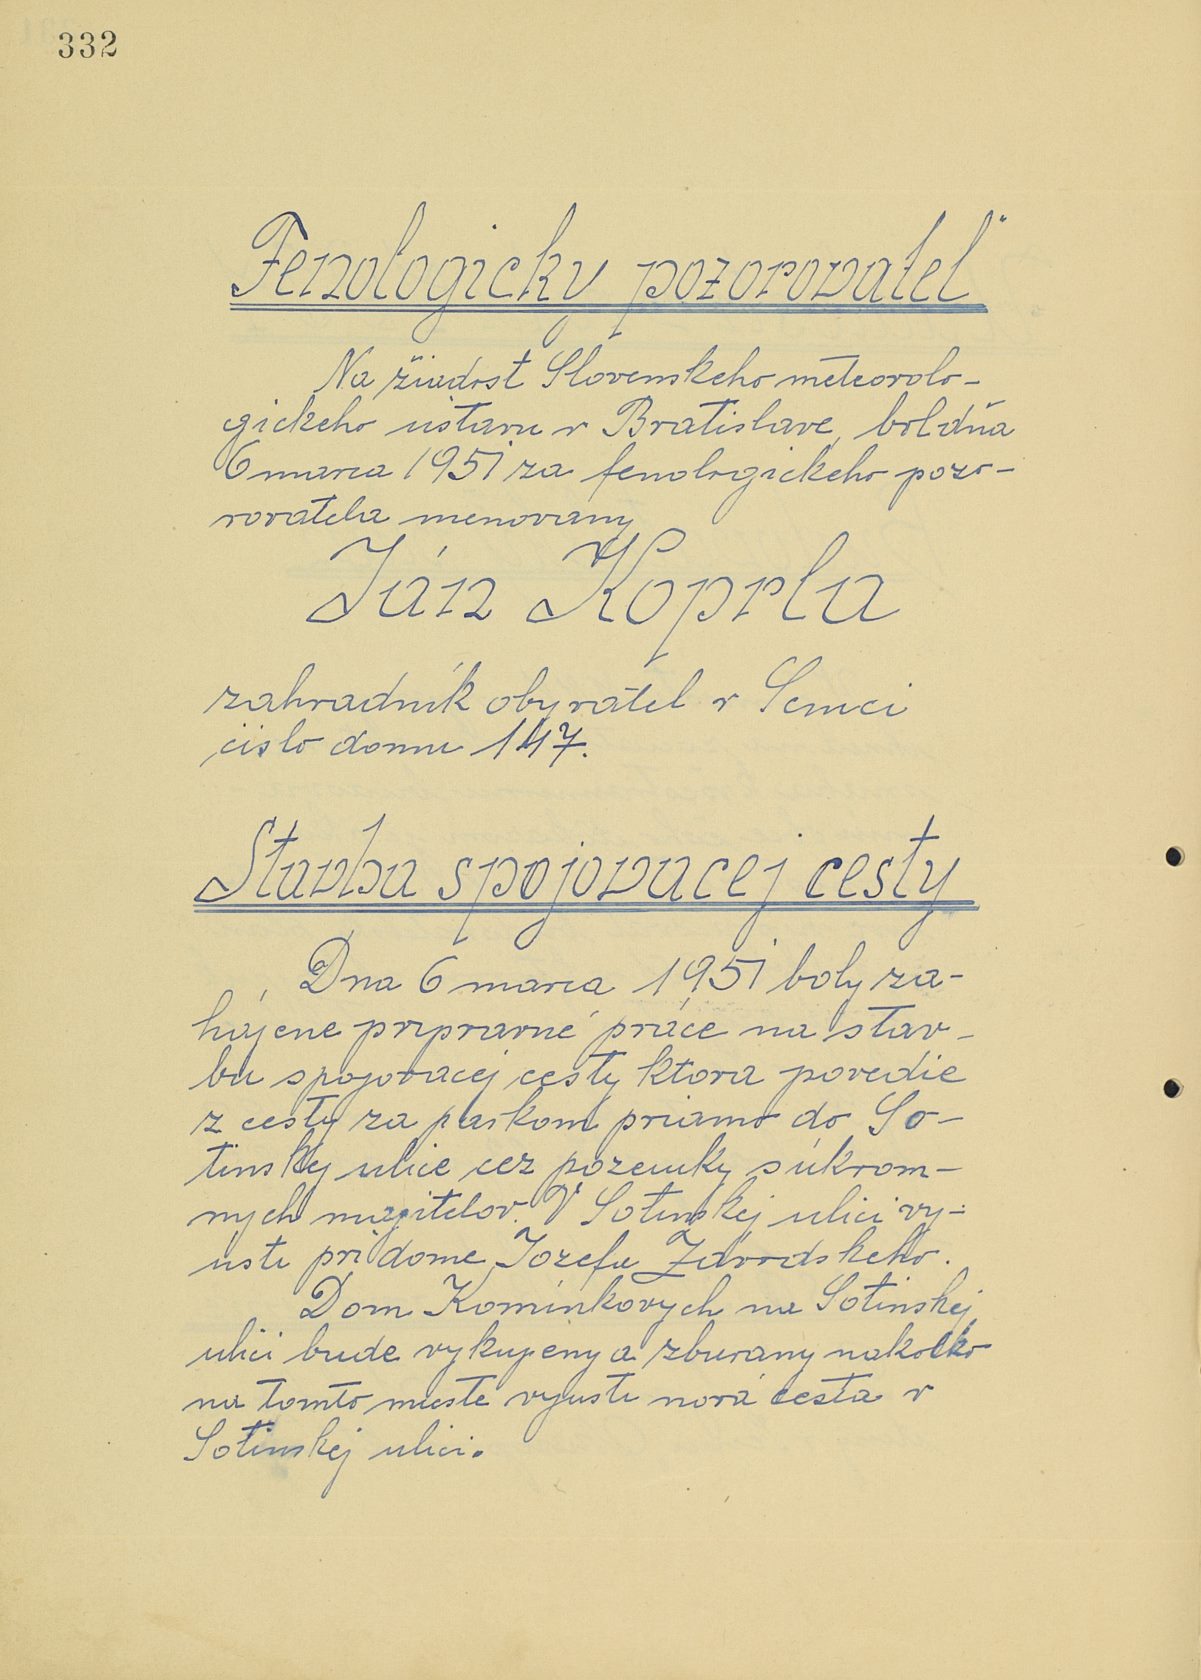 332
Fenologicky pozorovateľ
Na žiadosť Slovenskeho meteorolo-
gickeho ustavu v Bratislave, bol dňa
6 marca 1951 za fenologickeho pozo-
rovatela menovany
Ján Koprla
zahradník obyvatel v Senici
čislo domu 147.
Stavba spojovacej cesty
Dna 6 marca 1951 boly za-
hájene pripravné práce na stav-
bu spojovacej cesty ktora povedie
z cesty za parkom priamo do So-
tinskej ulice cez pozemky súkrom-
nych majitelov. V Sotinskej ulici vy-
usti pri dome Jozefa Závodskeho.
Dom Komínkovych na Sotinskej
ulici bude vykupeny a zburany nakolko
na tomto mieste vyusti nová cesta v
Sotinskej ulici.